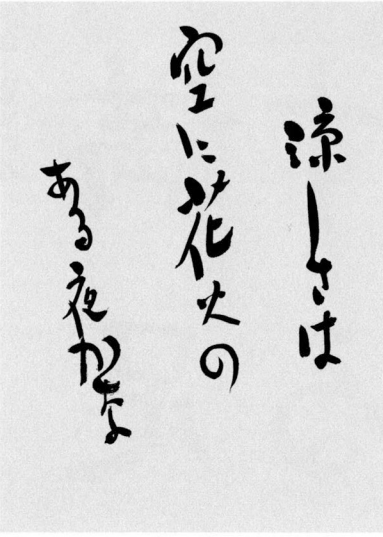 涼しさは
空に花火の
ある夜かな